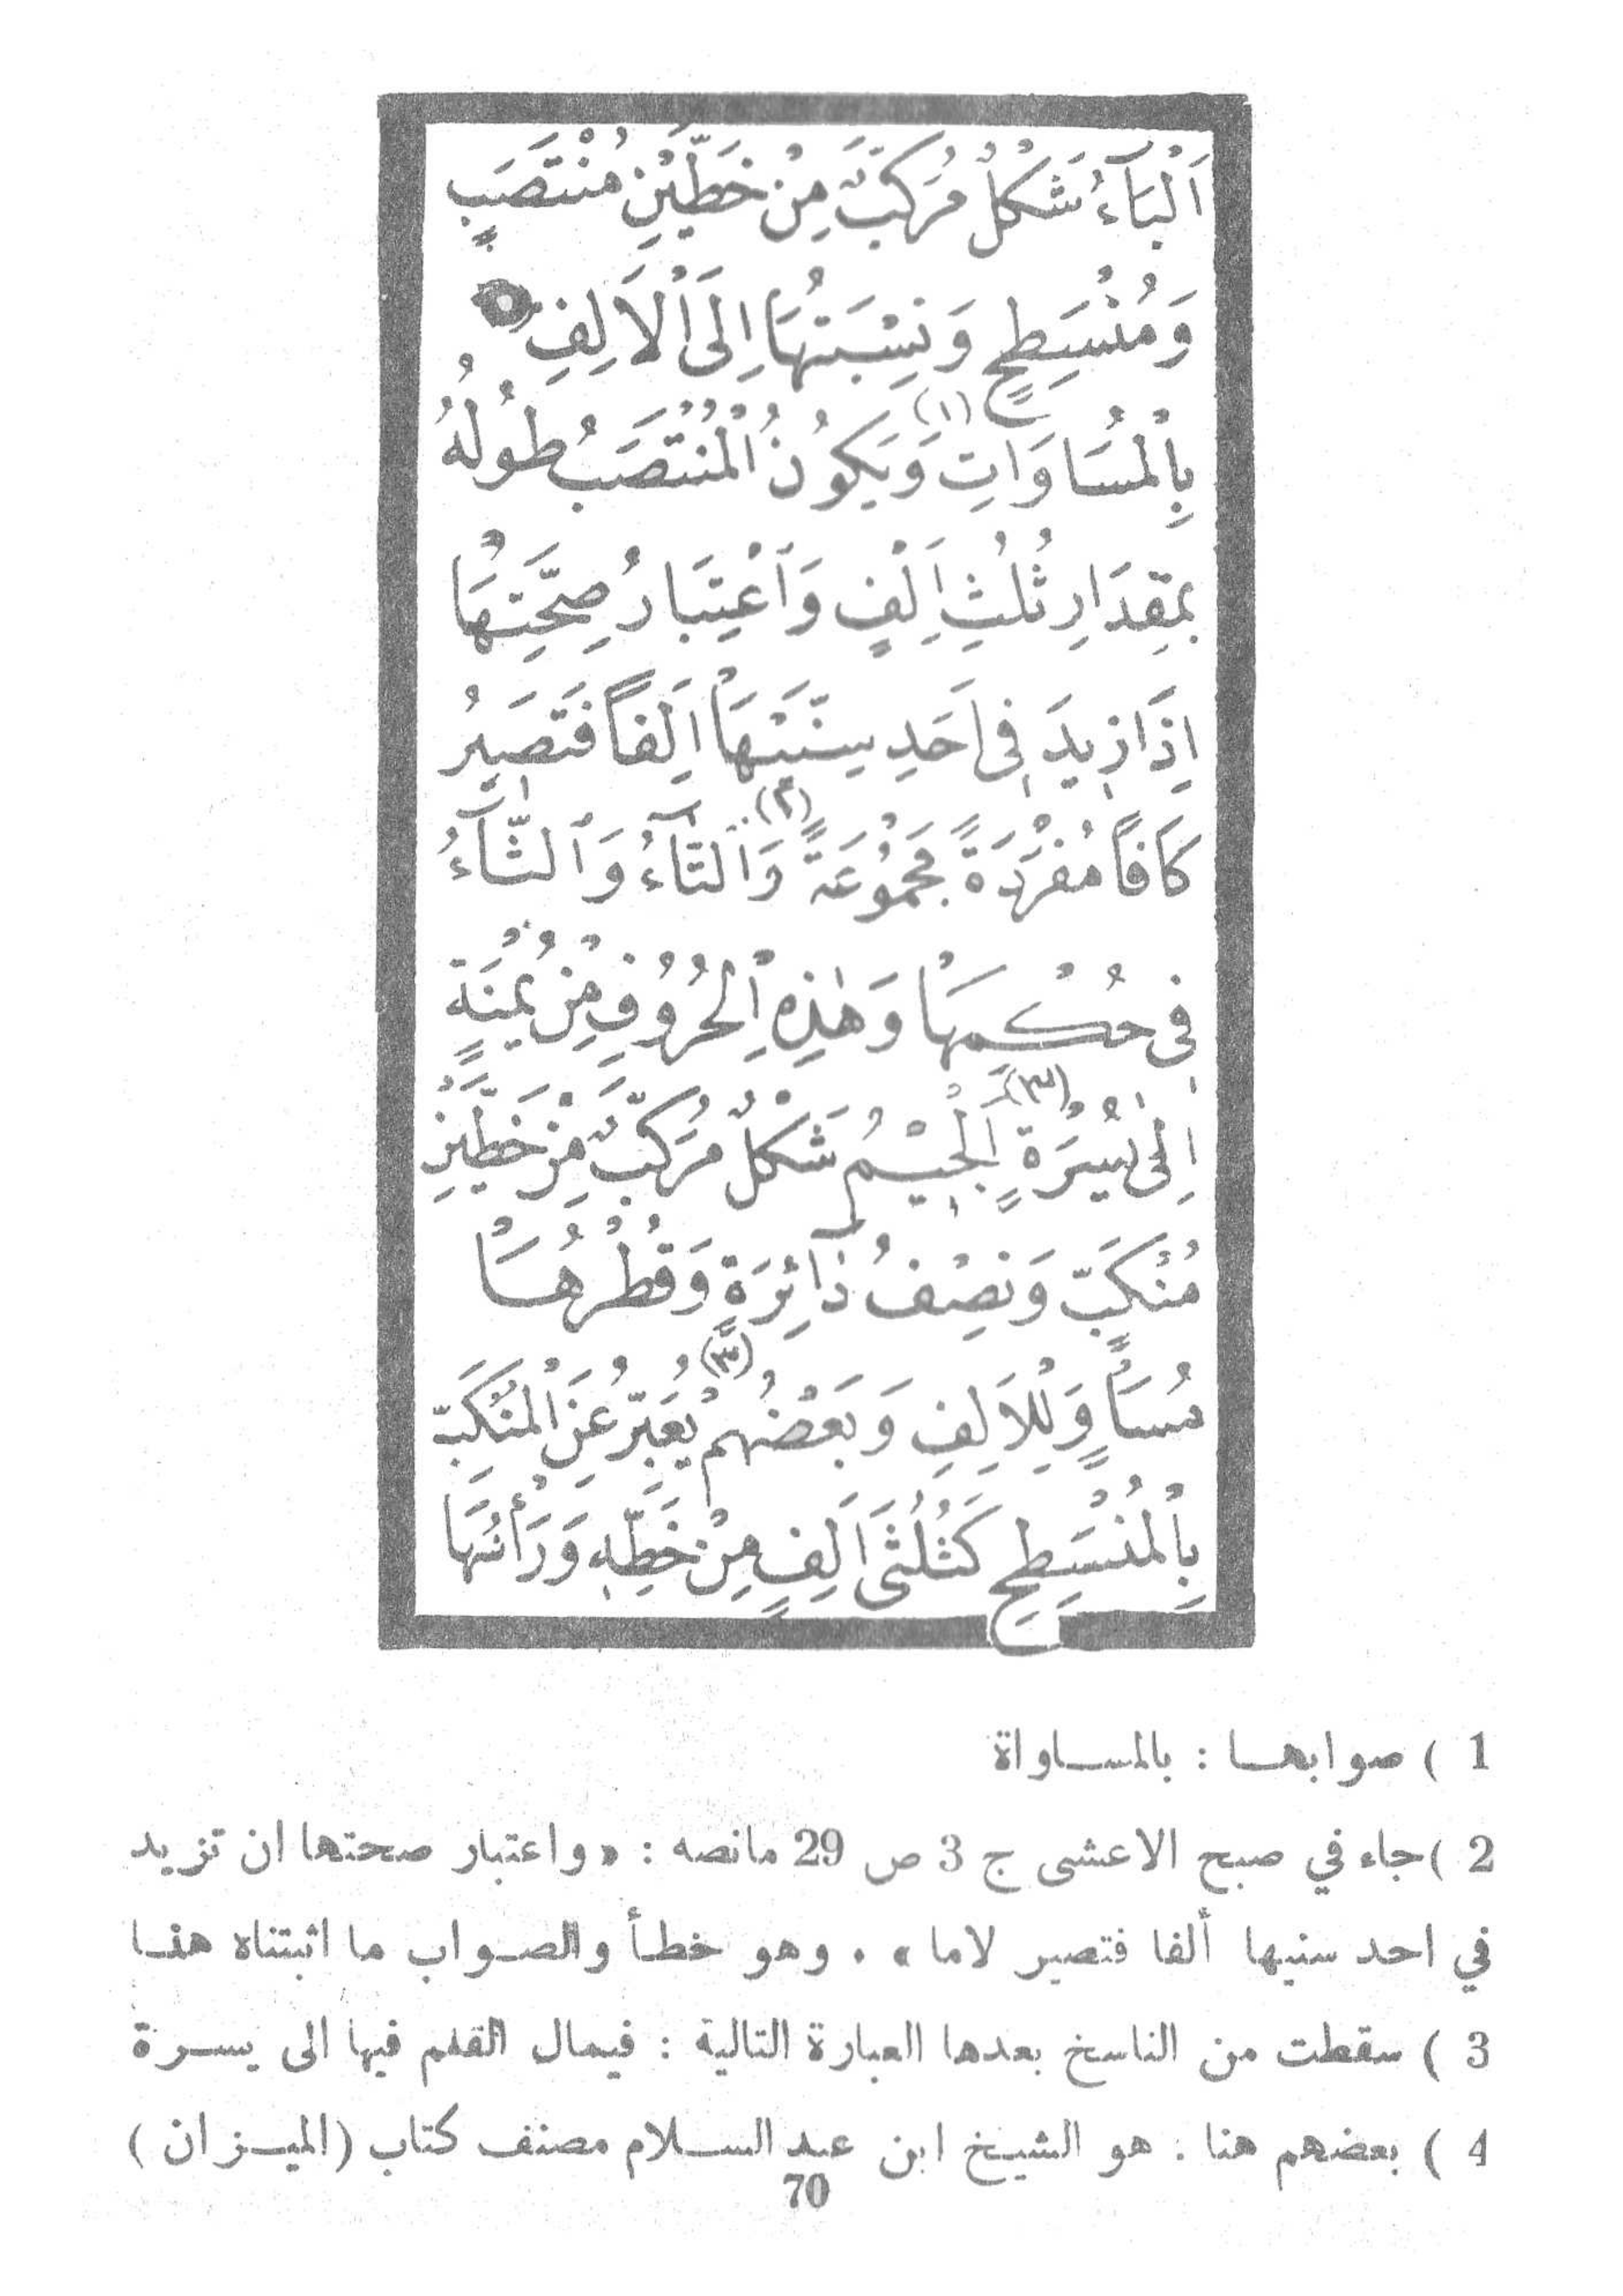 اَلْبَآءُ شَكْلٌ مُرَكَّبٌ مِنْ خَطَّيْنِ مُنْتَصَبٍ
وَمُنْسَطِحٍ وَنِسْبَتُهَا اِلَى اْلاَلِفِ
بِالْمُسَاوَاتِ (١) وَيَكُونُ الْمُنْتَصَبُ طُولُهُ
بِمِقدَارِ ثُلُثِ اَلِفٍ وَاَعْتِبَارُ صِحَّتِهَا
اِذَا زِيدَ فِى اَحَدِ سِنَّيْهَا اَلِفاً فَتَصِيرُ
كَافاً مُفْرَدَةً مَجْمُوعَةً (٢) وَالتَّآءُ وَالثَّآءُ
فِى حُكْمِهَا وَهٰذِهِ الْحُرُوفِ مِنْ يَمْنَةٍ
اِلَى يُسْرَةٍ (٣) اَلْجِيْمُ شَكْلٌ مُرَكَّبٌ مِنْ خَطَّيْنِ
مُنْكَبٍّ وَنِصْفُ دَآئِرَةٍ وَقُطْرُهَا
مُسَاوٍ لِلاَلِفِ وَبَعْضُهُمْ (٣) يُعَبِّرُ عَنِ الْمُنْكَبّ
بِالْمُنْسَطِحِ كَثُلُثَى اَلِفٍ مِنْ خَطِّهِ وَرَأْسُهَا
1 ) صوابها : بالمساواة
2 )جاء في صبح الاعشى ج 3 ص 29 مانصه : « واعتبار صحتها ان تزيد
في احد سنيها ألفا فتصير لاما » . وهو خطأ والصواب ما اثبتناه هنا
3 ) سقطت من الناسخ بعدها العبارة التالية : فيمال القلم فيها الى يسرة
4 ) بعضهم هنا . هو الشيخ ابن عبد السلام مصنف كتاب (الميزان )
70